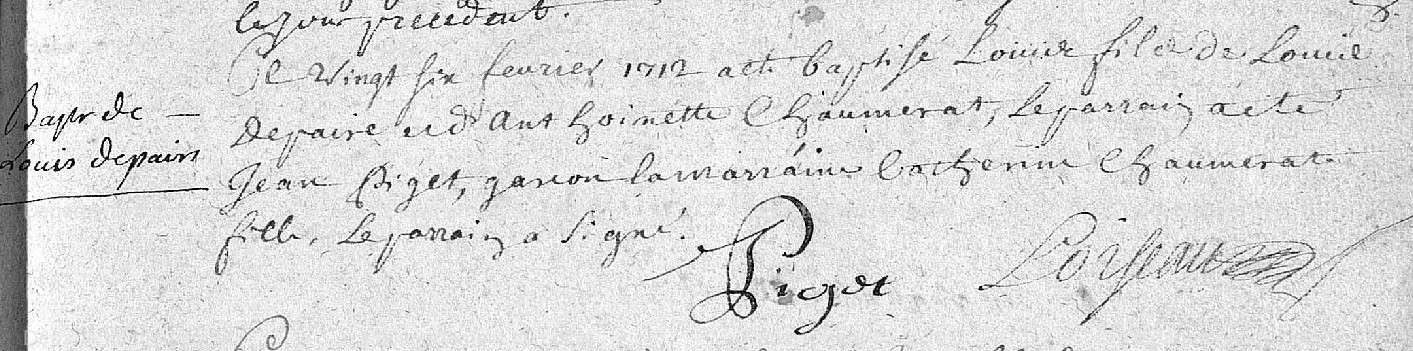 le jour precedent.
Le vingt six fevrier 1712 a ete baptisé Louis fils de Louis
Bapt de
depairs et d'anthoinette Chaumerat, Le parrain a ete
Louis depairs
Jean Piget, garcon la marraine Catherine Chaumerat
fille, Le parrain a signé.
Piget
Loiseau